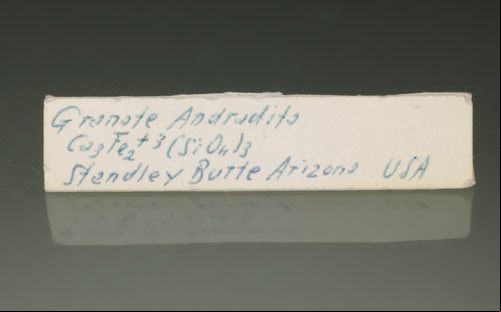 Granate Andradita
Ca3Fe2+3(SiO4)3
Standley Butte Arizona USA